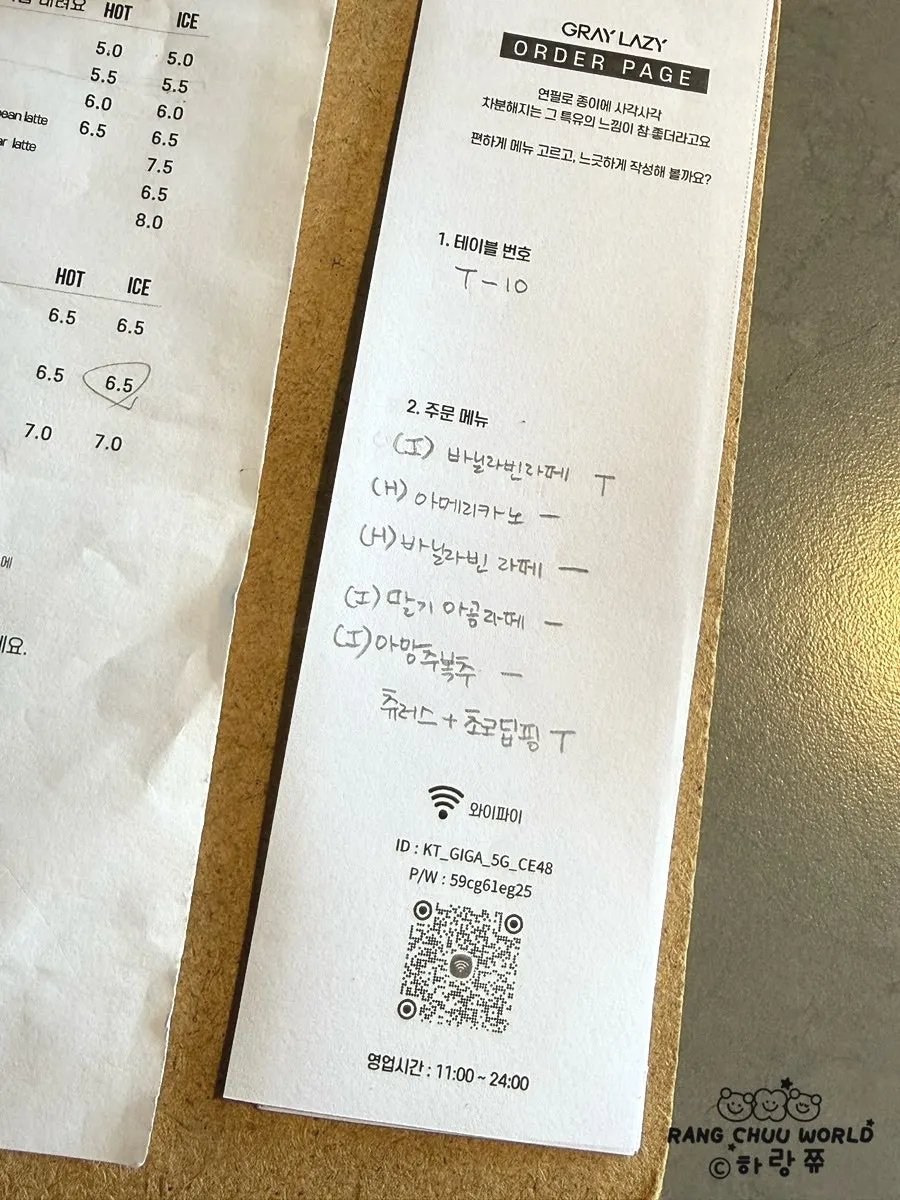 내려요 HOT ICE
5.0 5.0
5.5 5.5
6.0 6.0
bean latte 6.5 6.5
ar latte 7.5
6.5
8.0
HOT ICE
6.5 6.5
6.5 6.5
7.0 7.0
에
세요.
GRAY LAZY
ORDER PAGE
연필로 종이에 사각사각
차분해지는 그 특유의 느낌이 참 좋더라고요
편하게 메뉴 고르고, 느긋하게 작성해 볼까요?
1. 테이블 번호
T-10
2. 주문 메뉴
(I) 바닐라빈라떼 T
(H) 아메리카노 —
(H) 바닐라빈 라떼 —
(I) 딸기 아곰라떼 —
(I) 아망추복추 —
츄러스 + 초코딥핑 T
와이파이
ID : KT_GIGA_5G_CE48
P/W : 59cg61eg25
영업시간 : 11:00 ~ 24:00
RANG CHUU WORLD
© 하랑쮸